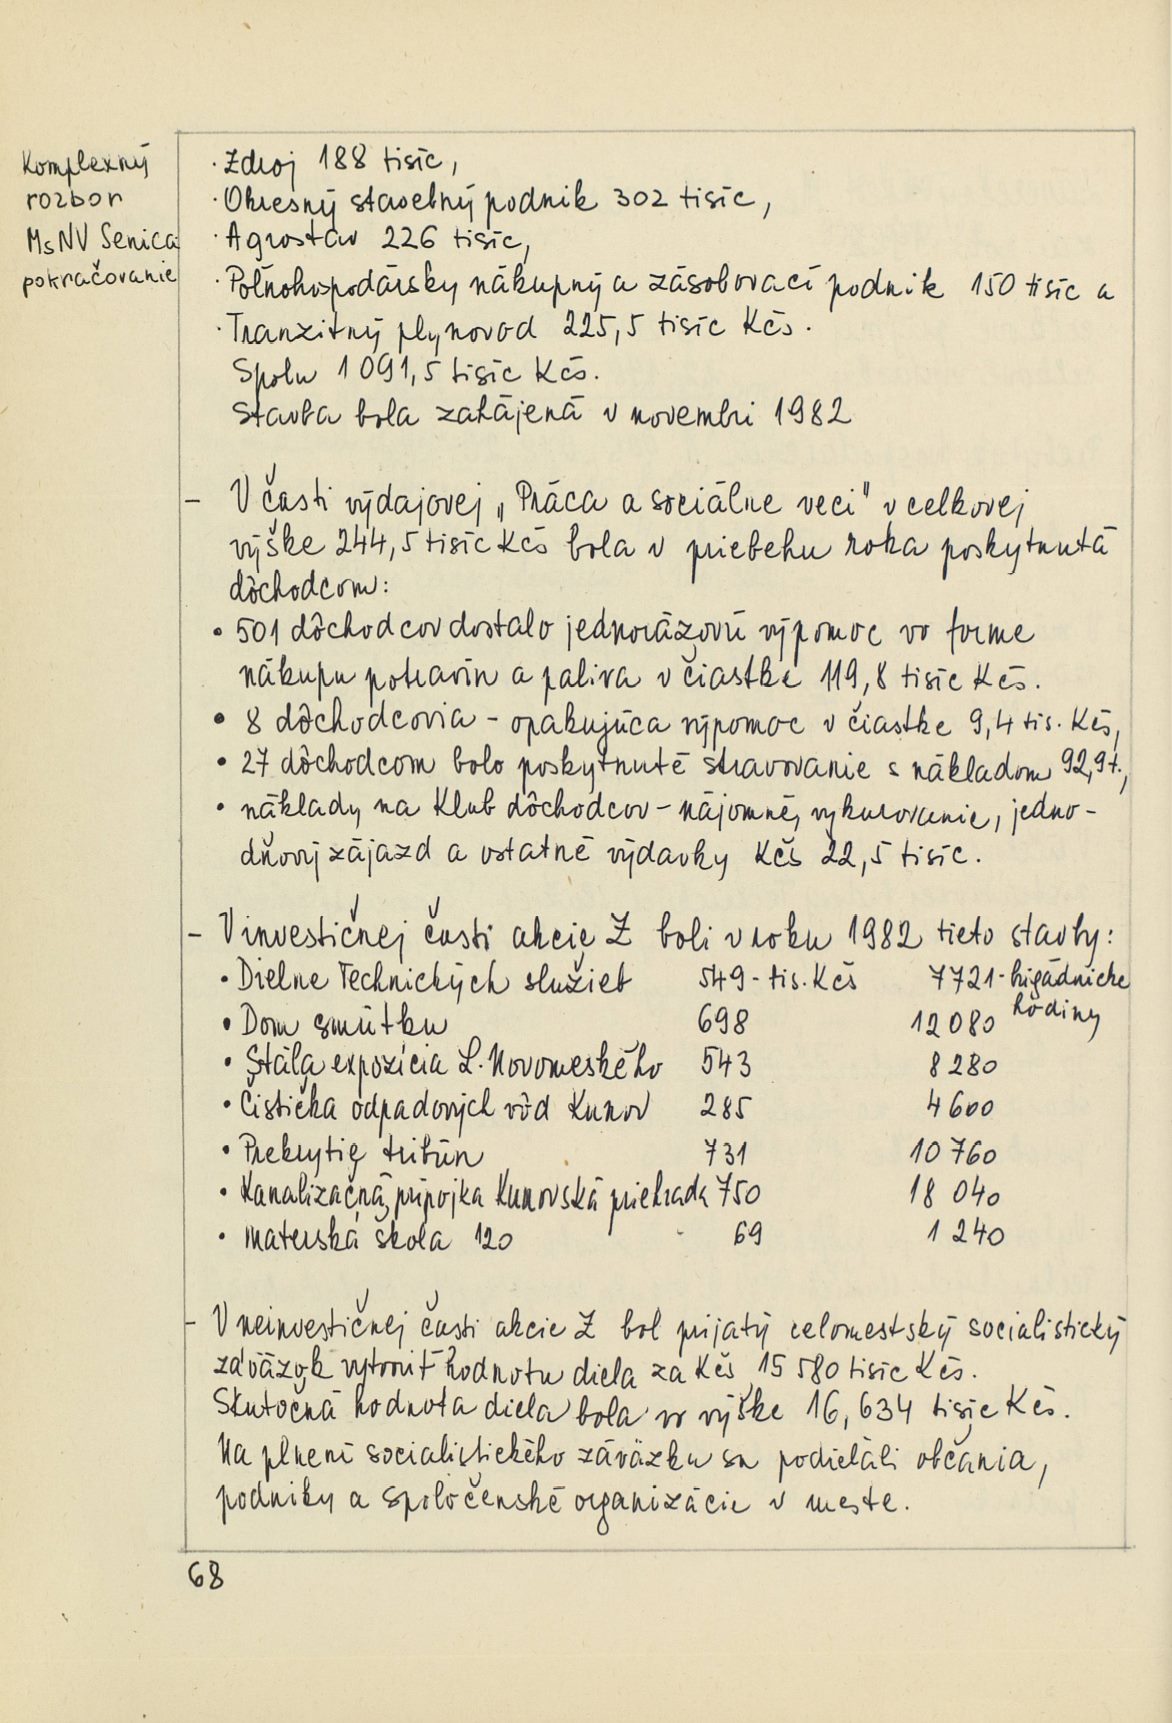 Komplexný
rozbor
MsNV Senica
pokračovanie
· Zdroj 188 tisíc,
· Okresný stavebný podnik 302 tisíc,
· Agrostav 226 tisíc,
· Poľnohospodársky nákupný a zásobovací podnik 150 tisíc a
· Tranzitný plynovod 225,5 tisíc Kčs.
Spolu 1 091,5 tisíc Kčs.
Stavba bola zahájená v novembri 1982
– V časti výdajovej „Práca a sociálne veci" v celkovej
výške 244,5 tisíc Kčs bola v priebehu roka poskytnutá
dôchodcom:
• 501 dôchodcov dostalo jednorázovú výpomoc vo forme
nákupu potravín a paliva v čiastke 119,8 tisíc Kčs.
• 8 dôchodcovia – opakujúca výpomoc v čiastke 9,4 tis. Kčs,
• 27 dôchodcom bolo poskytnuté stravovanie s nákladom 92,9 t.,
• náklady na Klub dôchodcov – nájomné, vykurovanie, jedno-
dňový zájazd a ostatné výdavky Kčs 22,5 tisíc.
– V investičnej časti akcie Z boli v roku 1982 tieto stavby:
• Dielne Technických služieb 549 - tis. Kčs 7721 - brigádnicke
hodiny
• Dom smútku 698 12 080
• Stála expozícia L. Novomeského 543 8 280
• Čistička odpadových vôd Kunov 285 4 600
• Prekrytie tribún 731 10 760
• Kanalizačná prípojka Kunovská priehrada 750 18 040
• Materská škola 120 69 1 240
– V neinvestičnej časti akcie Z bol prijatý celomestský socialistický
záväzok vytvoriť hodnotu diela za Kčs 15 580 tisíc Kčs.
Skutočná hodnota diela bola vo výške 16,634 tisíc Kčs.
Na plnení socialistického záväzku sa podieľali občania,
podniky a spoločenské organizácie v meste.
68